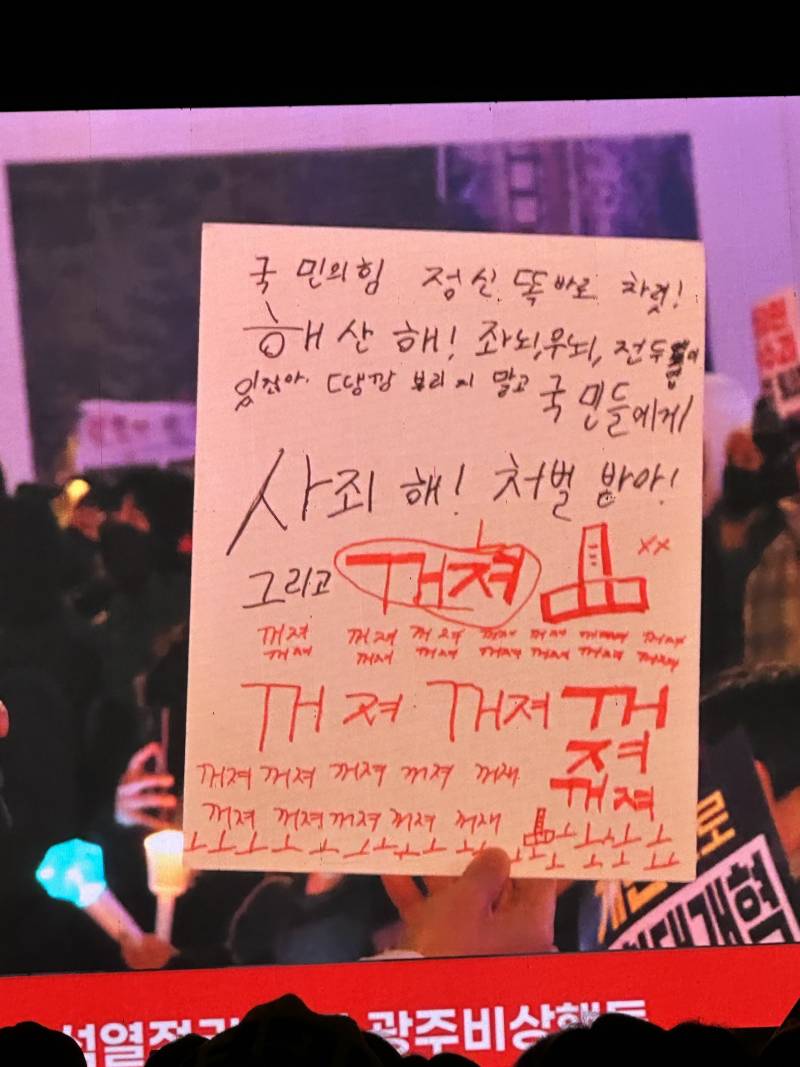 국민의힘 정신 똑바로 차렷!
해산해! 좌뇌, 우뇌, 전두엽이
있잖아. 땡깡 부리지 말고 국민들에게
사죄해! 처벌 받아!
그리고 꺼져 ㅗ xx
꺼져 꺼져 꺼져 꺼져 꺼져 꺼져 꺼져
꺼져 꺼져 꺼져 꺼져 꺼져 꺼져 꺼져
꺼져 꺼져 꺼
져
꺼져 꺼져 꺼져 꺼져 꺼져 꺼져
꺼져 꺼져 꺼져 꺼져 꺼져
ㅗ ㅗ ㅗ ㅗ ㅗ ㅗ ㅗ ㅗ ㅗ ㅗ ㅗ ㅗ ㅗ ㅗ
로
대개혁
석열 광주비상행동